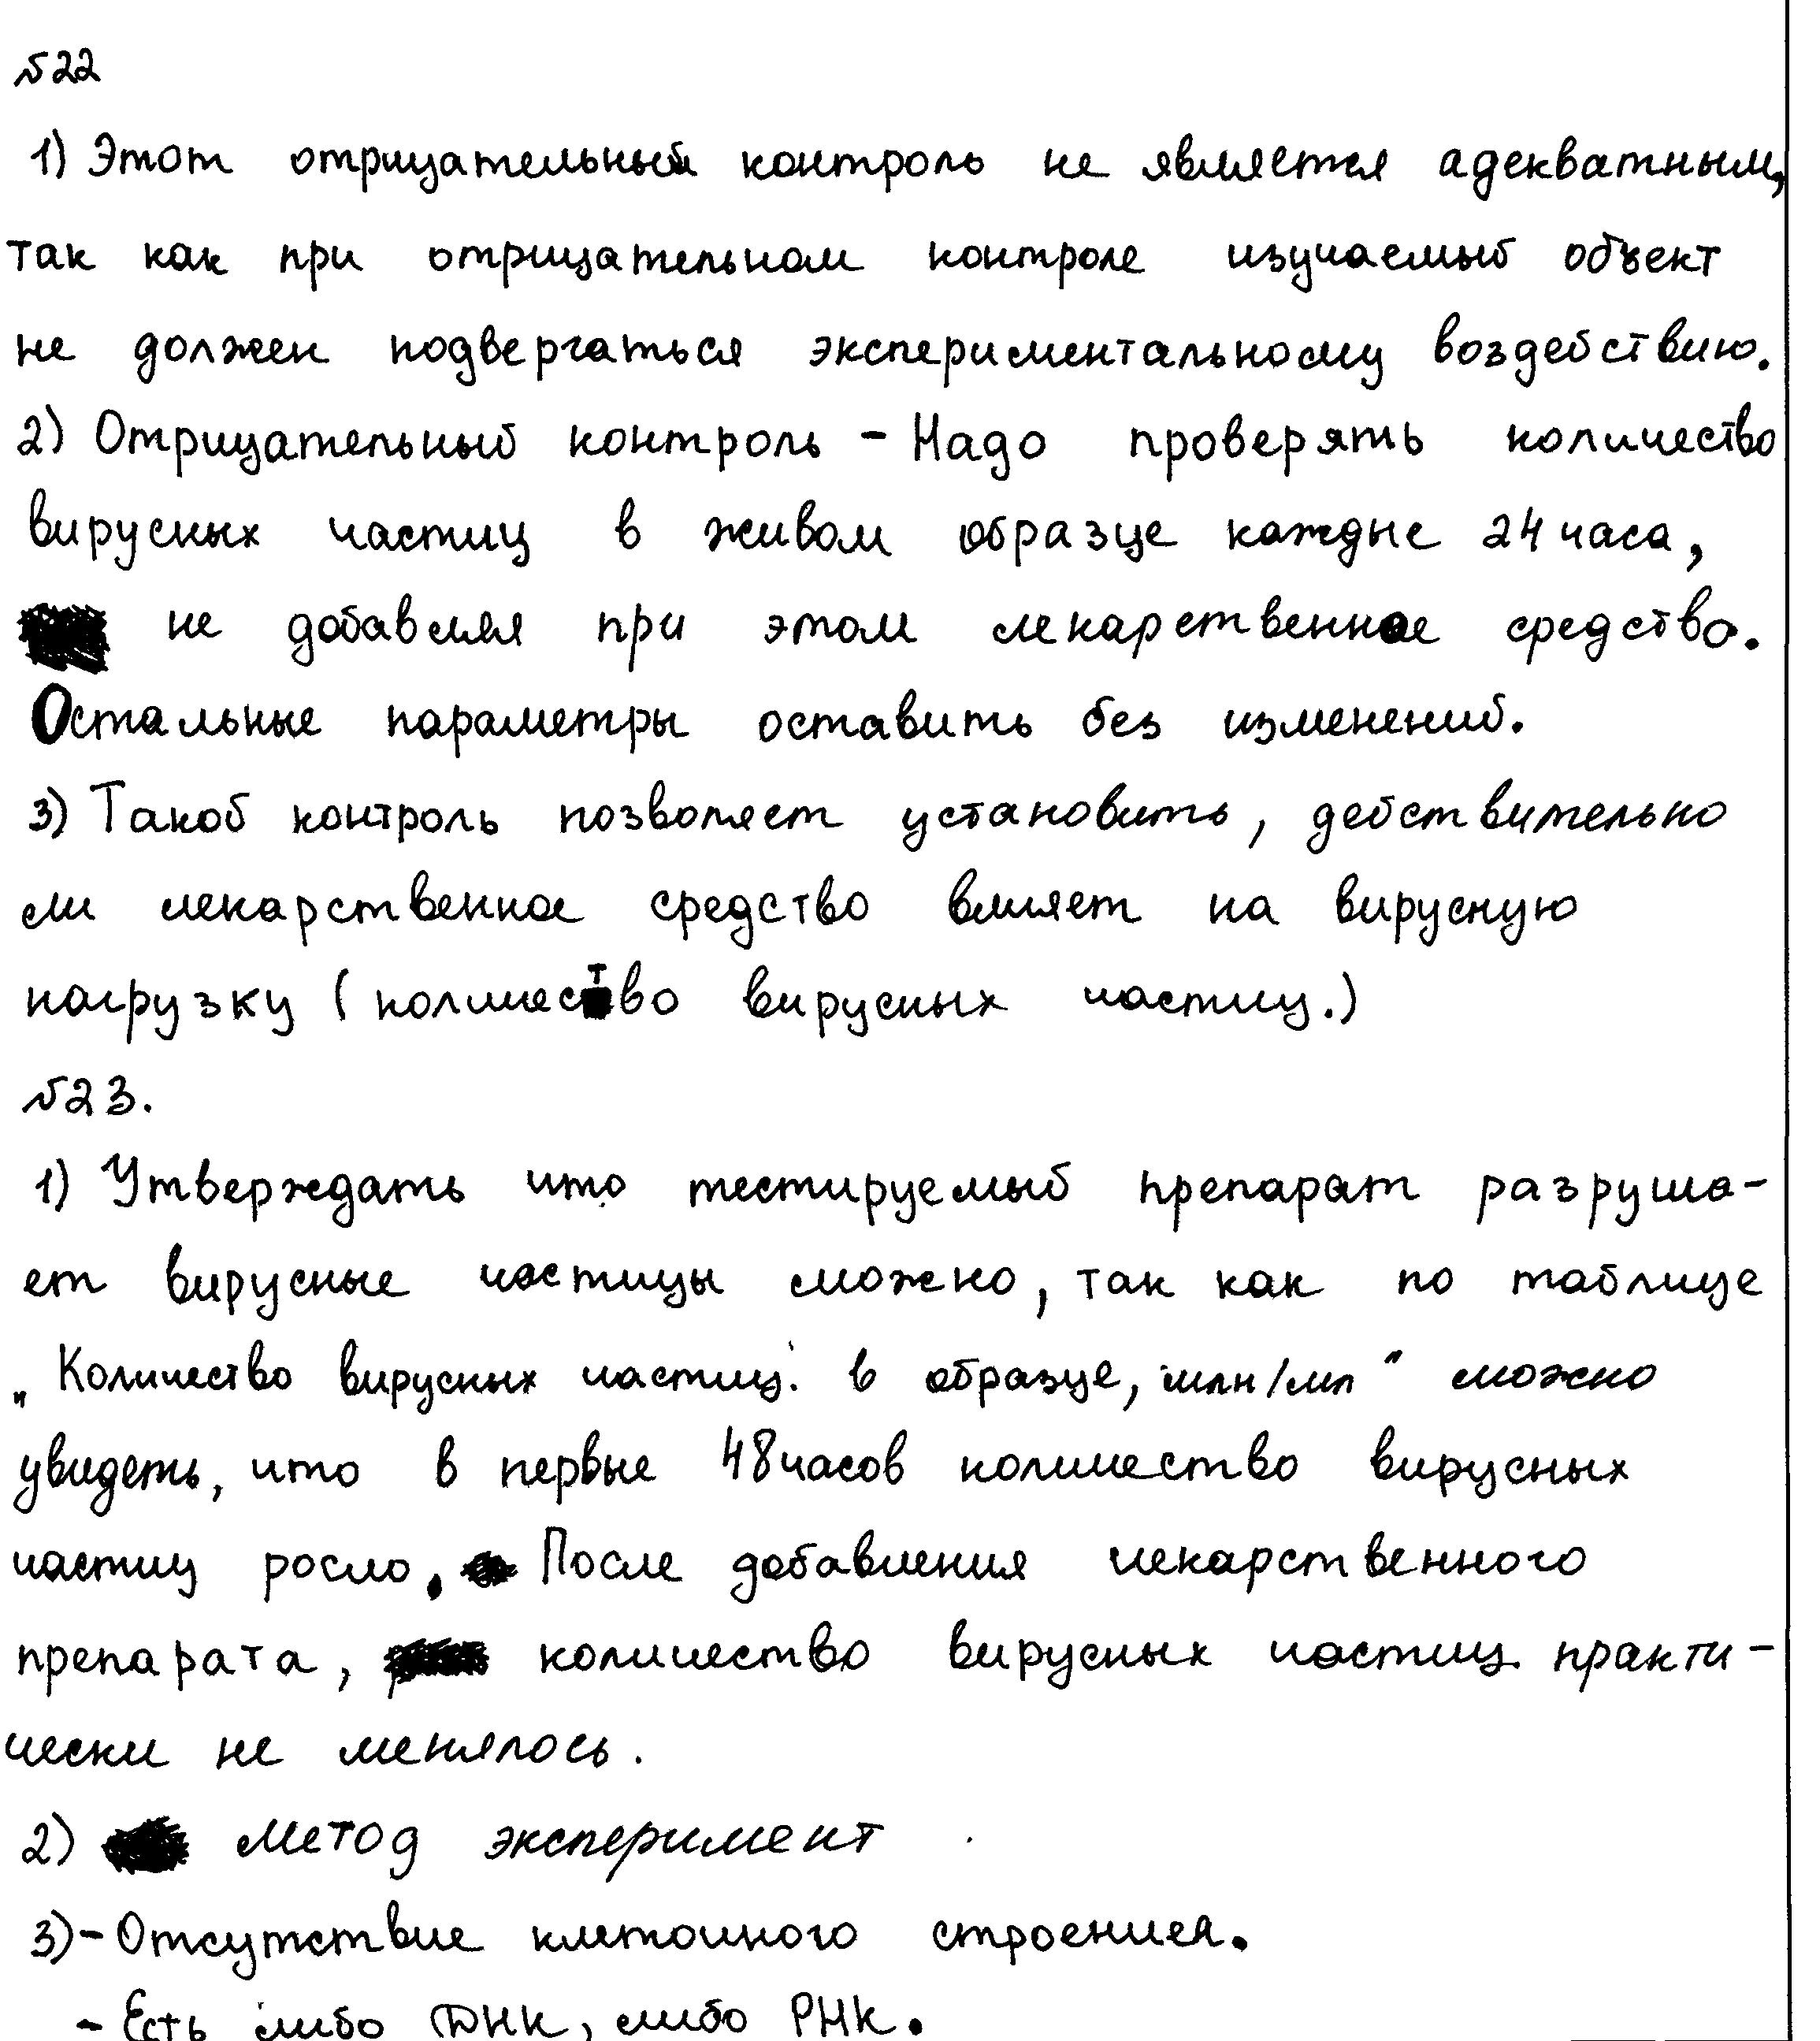 №22
1) Этот отрицательный контроль не является адекватным,
так как при отрицательном контроле изучаемый объект
не должен подвергаться экспериментальному воздействию.
2) Отрицательный контроль - Надо проверять количество
вирусных частиц в живом образце каждые 24 часа,
не добавляя при этом лекарственное средство.
Остальные параметры оставить без изменений.
3) Такой контроль позволяет установить, действительно
ли лекарственное средство влияет на вирусную
нагрузку (количество вирусных частиц.)
№23.
1) Утверждать что тестируемый препарат разруша-
ет вирусные частицы можно, так как по таблице
„Количество вирусных частиц в образце, млн/мл" можно
увидеть, что в первые 48 часов количество вирусных
частиц росло. После добавления лекарственного
препарата, количество вирусных частиц практи-
чески не менялось.
2) Метод эксперимент
3) - Отсутствие клеточного строения.
- Есть либо ДНК, либо РНК.